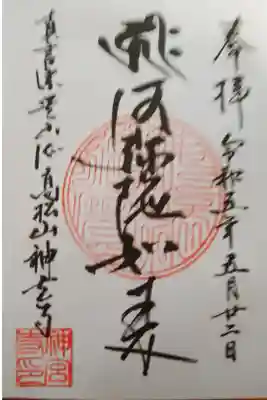 奉拝 令和五年五月廿二日
阿弥陀如来
真言宗豊山派 松山神宮寺
神宮寺印